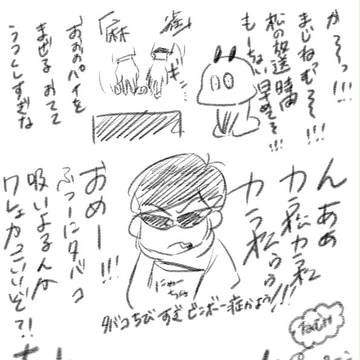 かーーっ!!!
まじねっむてぇ!!!
松の放送時間
もーちょい早めてぇ!!!
「麻雀」
おおのパイを
まぜる おてて
うつくしすぎな
んああ
カラ松カラ松
カラ松ぅぅ!!!
おめー!!!
ふつーにタバコ
吸いよるんか
ワレェかっこいいぞて!!
にゃー
ちゃん
タバコちびすぎビンボー症かよぅ!
ねむけ